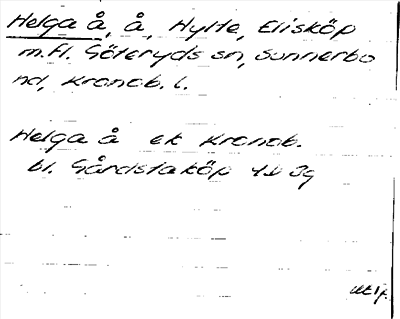 Helga å, å, Hylte, Elisköp
m.fl. Göteryds sn, Sunnerbo
hd, Kronob. l.
Helga å ek Kronob.
bl. Gårdstaköp 4D 3g